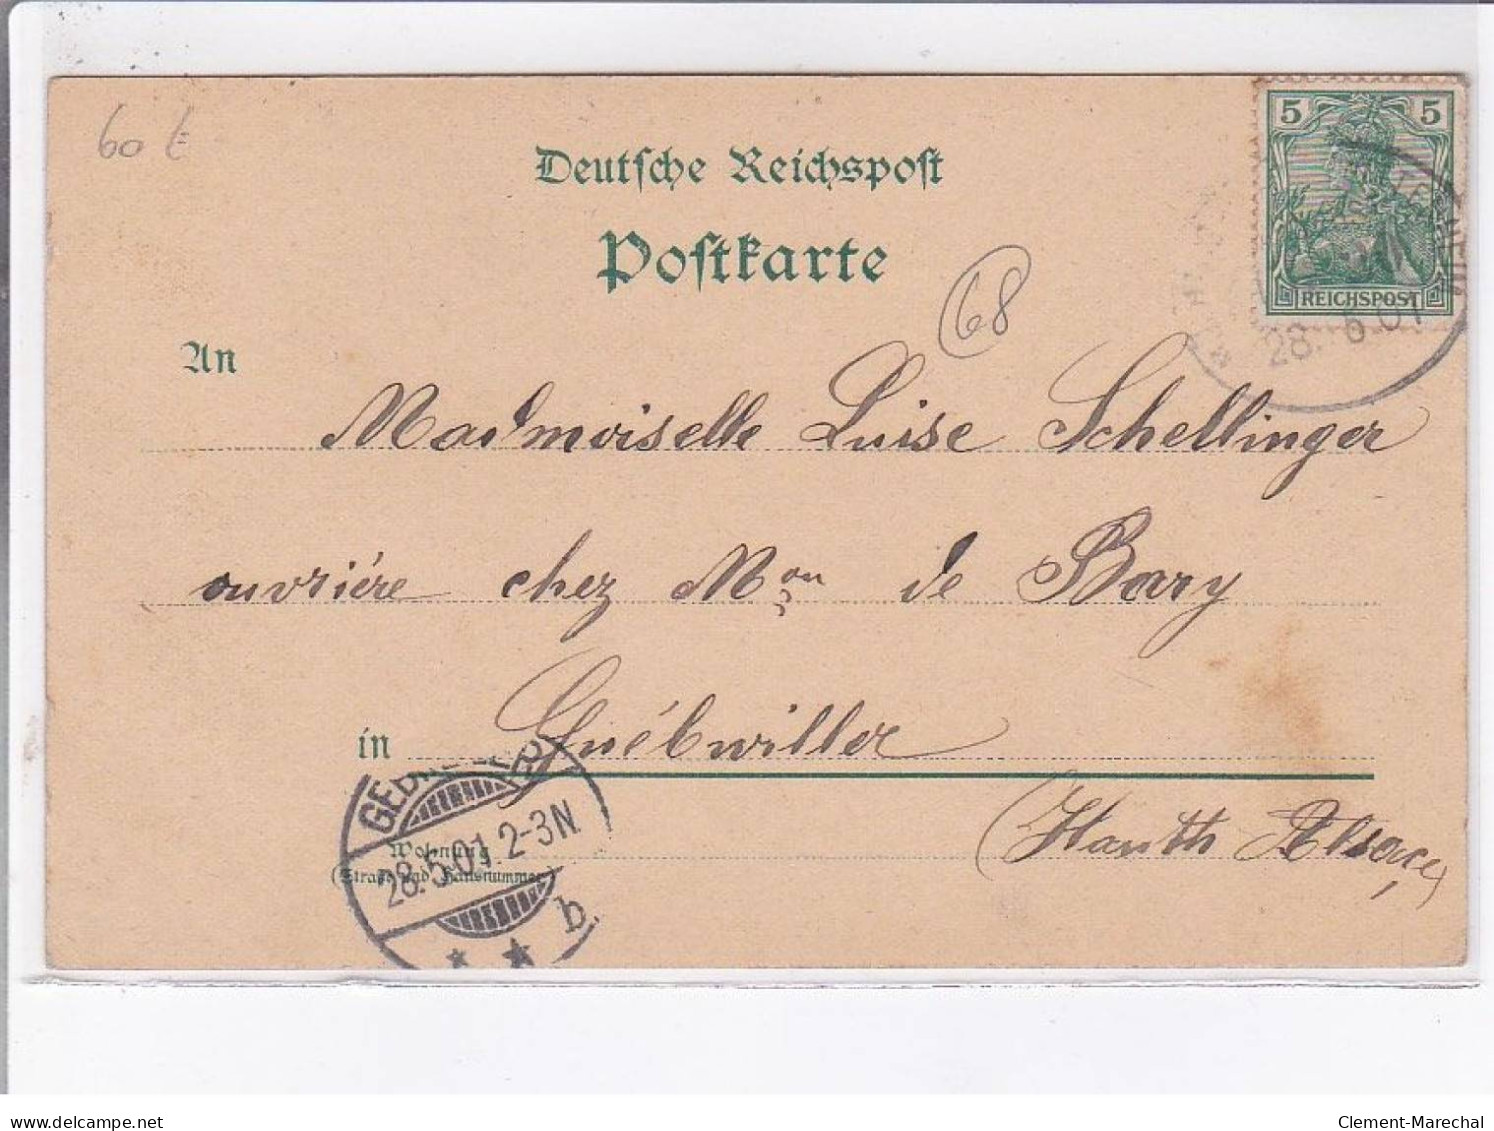 60 €
Deutsche Reichspost
Postkarte
68
5 5
REICHSPOST
28. 5.01
An
Mademoiselle Luise Schellinger
ouvrière chez Mon de Bary
in Guébwiller
(Hauth Alsace)
Wohnung
(Straße und Hausnummer)
28.5.01 2-3N.
b.
delcampe.net
Clement-Marechal